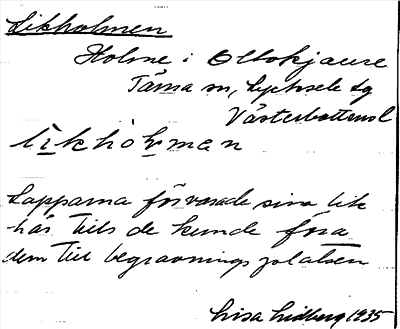 Likholmen
Holme i Oltokjaure
Tärna sn, Lycksele lg
Västerbottens l
likhòlman
Lapparna förvarade sina lik
här tills de kunde föra
dem till begravningsplatsen
Lisa Lidberg 1935